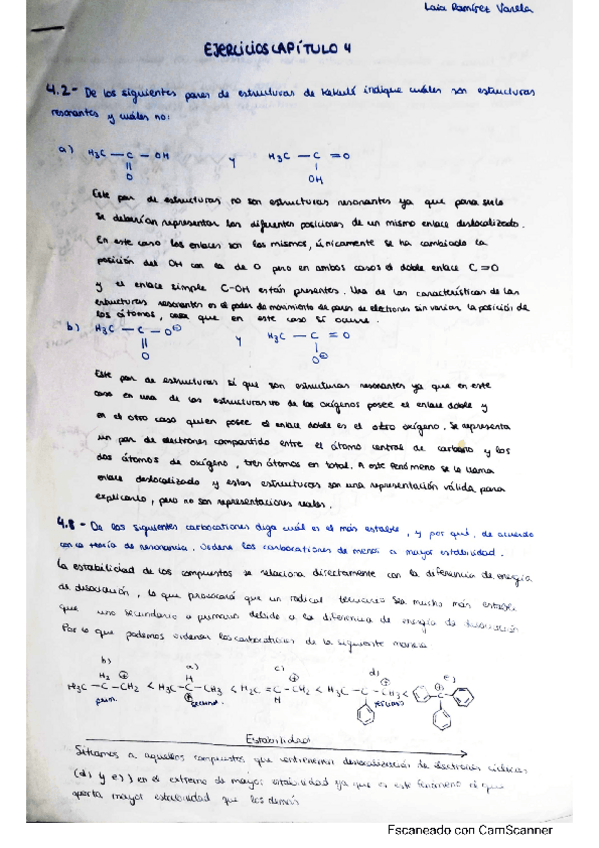 Laia Ramírez Varela
EJERCICIOS CAPÍTULO 4
4.2- De los siguientes pares de estructuras de Kekulé indique cuáles son estructuras
resonantes y cuáles no:
a) H3C — C — OH y H3C — C = O
O OH
Este par de estructuras no son estructuras resonantes ya que para serlo
se deberían representar las diferentes posiciones de un mismo enlace deslocalizado.
En este caso los enlaces son los mismos, únicamente se ha cambiado la
posición del OH con la de O pero en ambos casos el doble enlace C=O
y el enlace simple C-OH están presentes. Una de las características de las
estructuras resonantes es el poder de movimiento de pares de electrones sin variar la posición de
los átomos, cosa que en este caso sí ocurre.
b) H3C — C — O⊖ y H3C — C = O
O O⊖
Este par de estructuras sí que son estructuras resonantes ya que en este
caso en una de las estructuras uno de los oxígenos posee el enlace doble y
en el otro caso quien posee el enlace doble es el otro oxígeno. Se representa
un par de electrones compartido entre el átomo central de carbono y los
dos átomos de oxígeno, tren átomos en total. A este fenómeno se le llama
enlace deslocalizado y estas estructuras son una representación válida para
explicarlo, pero no son representaciones reales.
4.8- De los siguientes carbocationes diga cuál es el más estable, y por qué, de acuerdo
con la teoría de resonancia. Ordene los carbocationes de menor a mayor estabilidad.
La estabilidad de los compuestos se relaciona directamente con la diferencia de energía
de disociación, lo que provocará que un radical terciario sea mucho más estable
que uno secundario o primario debido a la diferencia de energía de disociación
Por lo que podemos ordenar los carbocationes de la siguiente manera
b) a) c) d) e)
H2 ⊕ H ⊕ ⊕ ⊕
H3C — C — CH2 < H3C — C — CH3 < H2C = C — CH2 < H3C — C — CH3 <
prim. ⊕ secund. H terciario
Estabilidad
Situamos a aquellos compuestos que contienen deslocalización de electrones
(d) y e)) en el extremo de mayor estabilidad ya que es este fenómeno el que
aporta mayor estabilidad que los demás
Escaneado con CamScanner